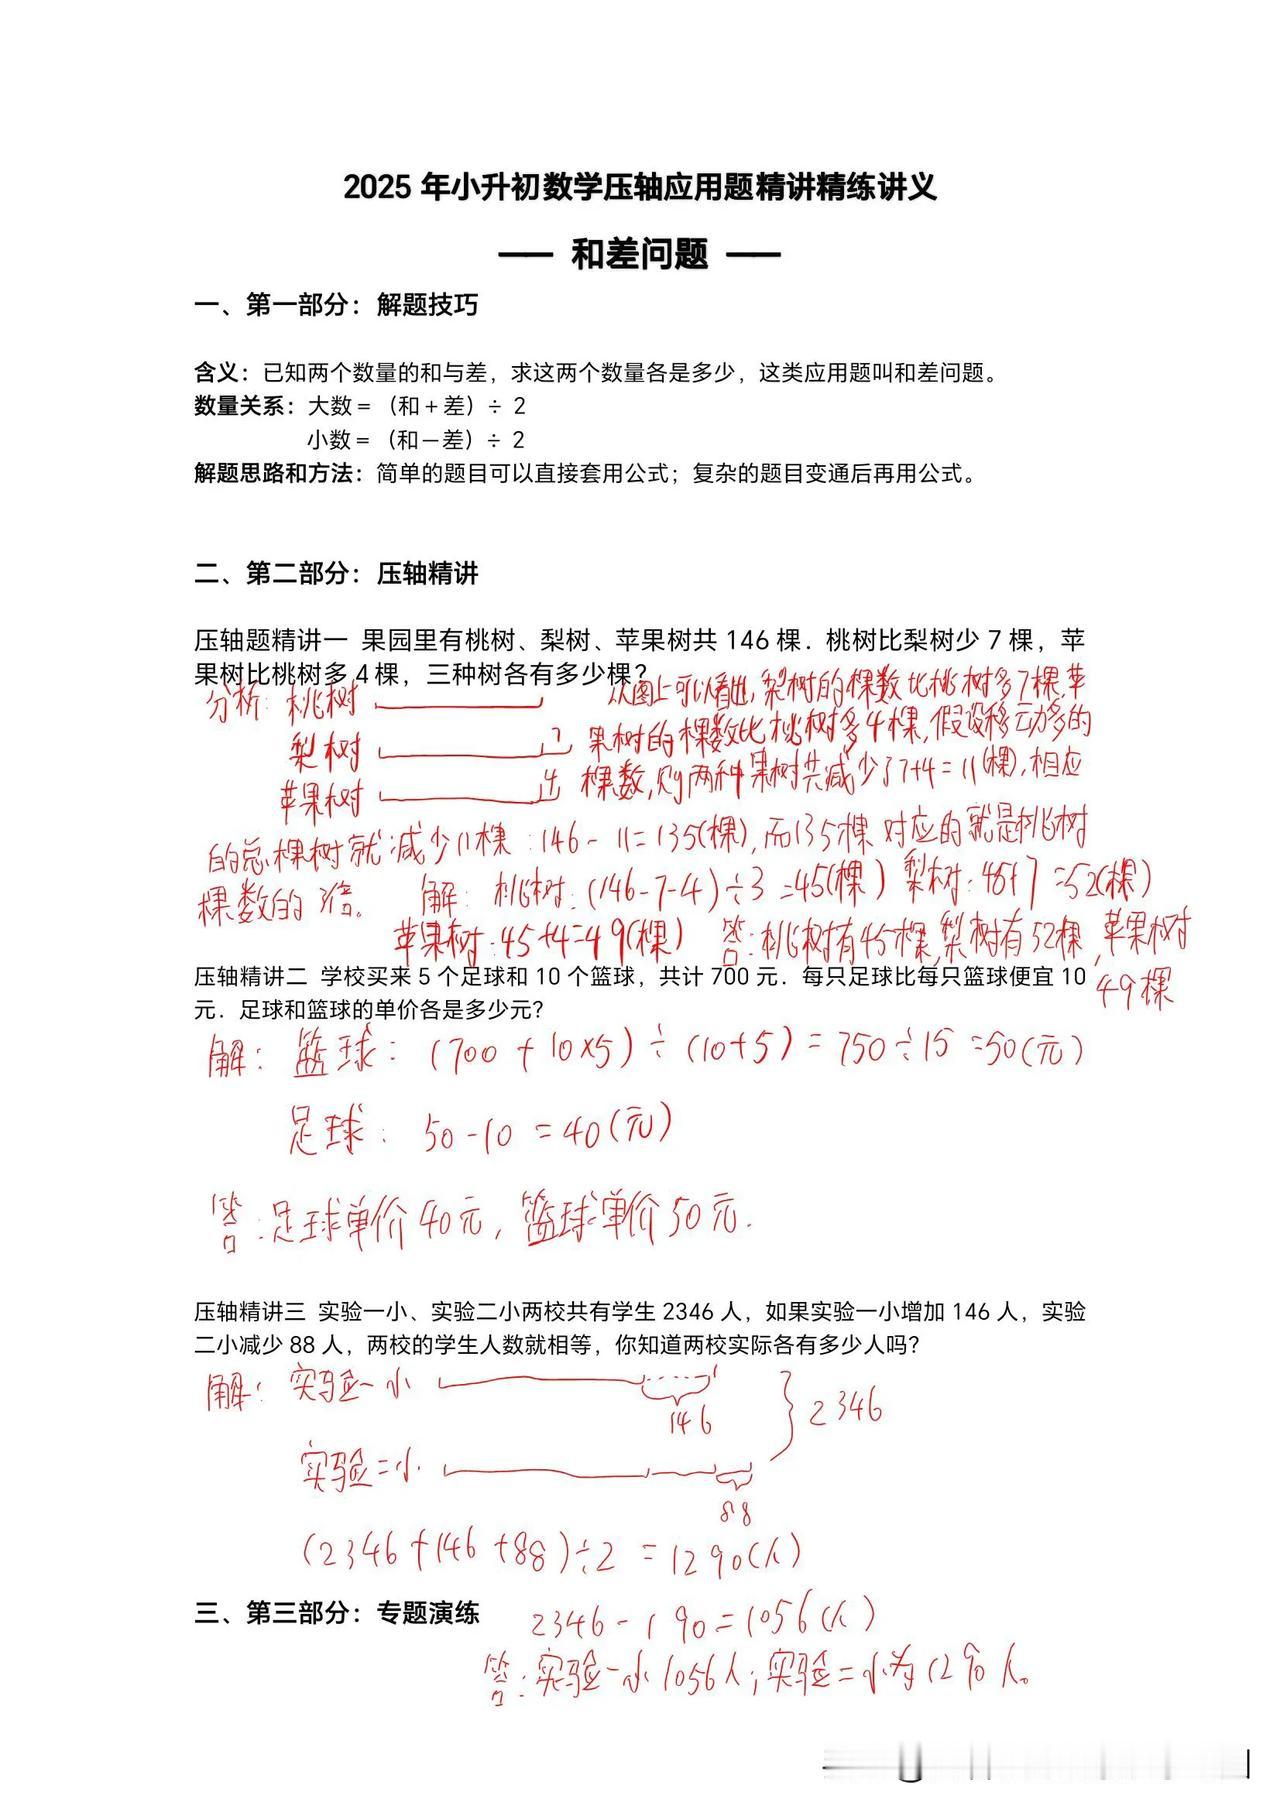 2025 年小升初数学压轴应用题精讲精练讲义
—— 和差问题 ——
一、第一部分：解题技巧
含义：已知两个数量的和与差，求这两个数量各是多少，这类应用题叫和差问题。
数量关系：大数＝（和＋差）÷ 2
小数＝（和－差）÷ 2
解题思路和方法：简单的题目可以直接套用公式；复杂的题目变通后再用公式。
二、第二部分：压轴精讲
压轴题精讲一 果园里有桃树、梨树、苹果树共 146 棵．桃树比梨树少 7 棵，苹
果树比桃树多 4 棵，三种树各有多少棵？
分析：桃树 从图上可以看出,梨树的棵数比桃树多7棵,苹
梨树 7 果树的棵数比桃树多4棵,假设移动多的
苹果树 4 棵数,则两种果树共减少了7+4=11(棵),相应
的总棵树就减少11棵:146-11=135(棵),而135棵对应的就是桃树
棵数的3倍。 解:桃树:(146-7-4)÷3=45(棵) 梨树:45+7=52(棵)
苹果树:45+4=49(棵) 答:桃树有45棵,梨树有52棵,苹果树
49棵
压轴精讲二 学校买来 5 个足球和 10 个篮球，共计 700 元．每只足球比每只篮球便宜 10
元．足球和篮球的单价各是多少元？
解: 篮球:(700+10×5)÷(10+5)=750÷15=50(元)
足球: 50-10=40(元)
答:足球单价40元,篮球单价50元.
压轴精讲三 实验一小、实验二小两校共有学生 2346 人，如果实验一小增加 146 人，实验
二小减少 88 人，两校的学生人数就相等，你知道两校实际各有多少人吗？
解: 实验一小
146
2346
实验二小
88
(2346+146+88)÷2=1290(人)
三、第三部分：专题演练
2346-1 90=1056(人)
答:实验一小1056人;实验二小为1290人。